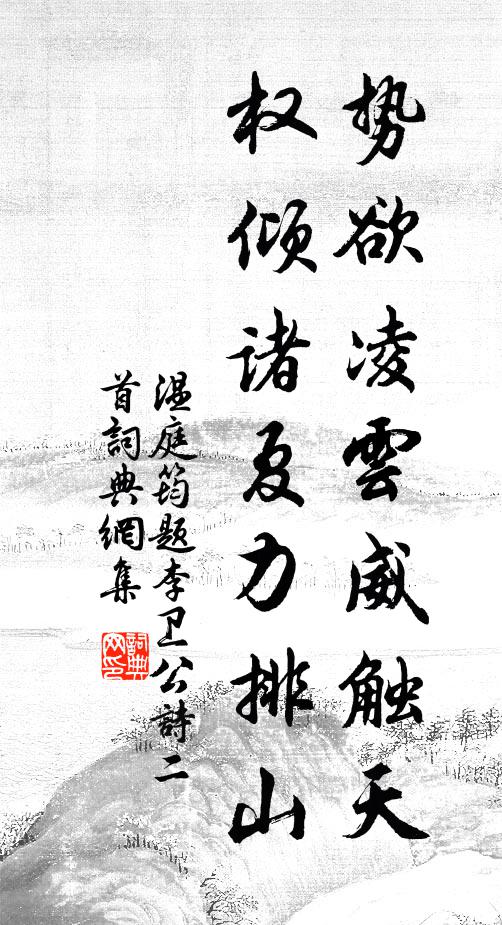 势欲凌雲威触天
权倾诸夏力排山
温庭筠题李卫公詩二
首詞典網集
詞典
网印